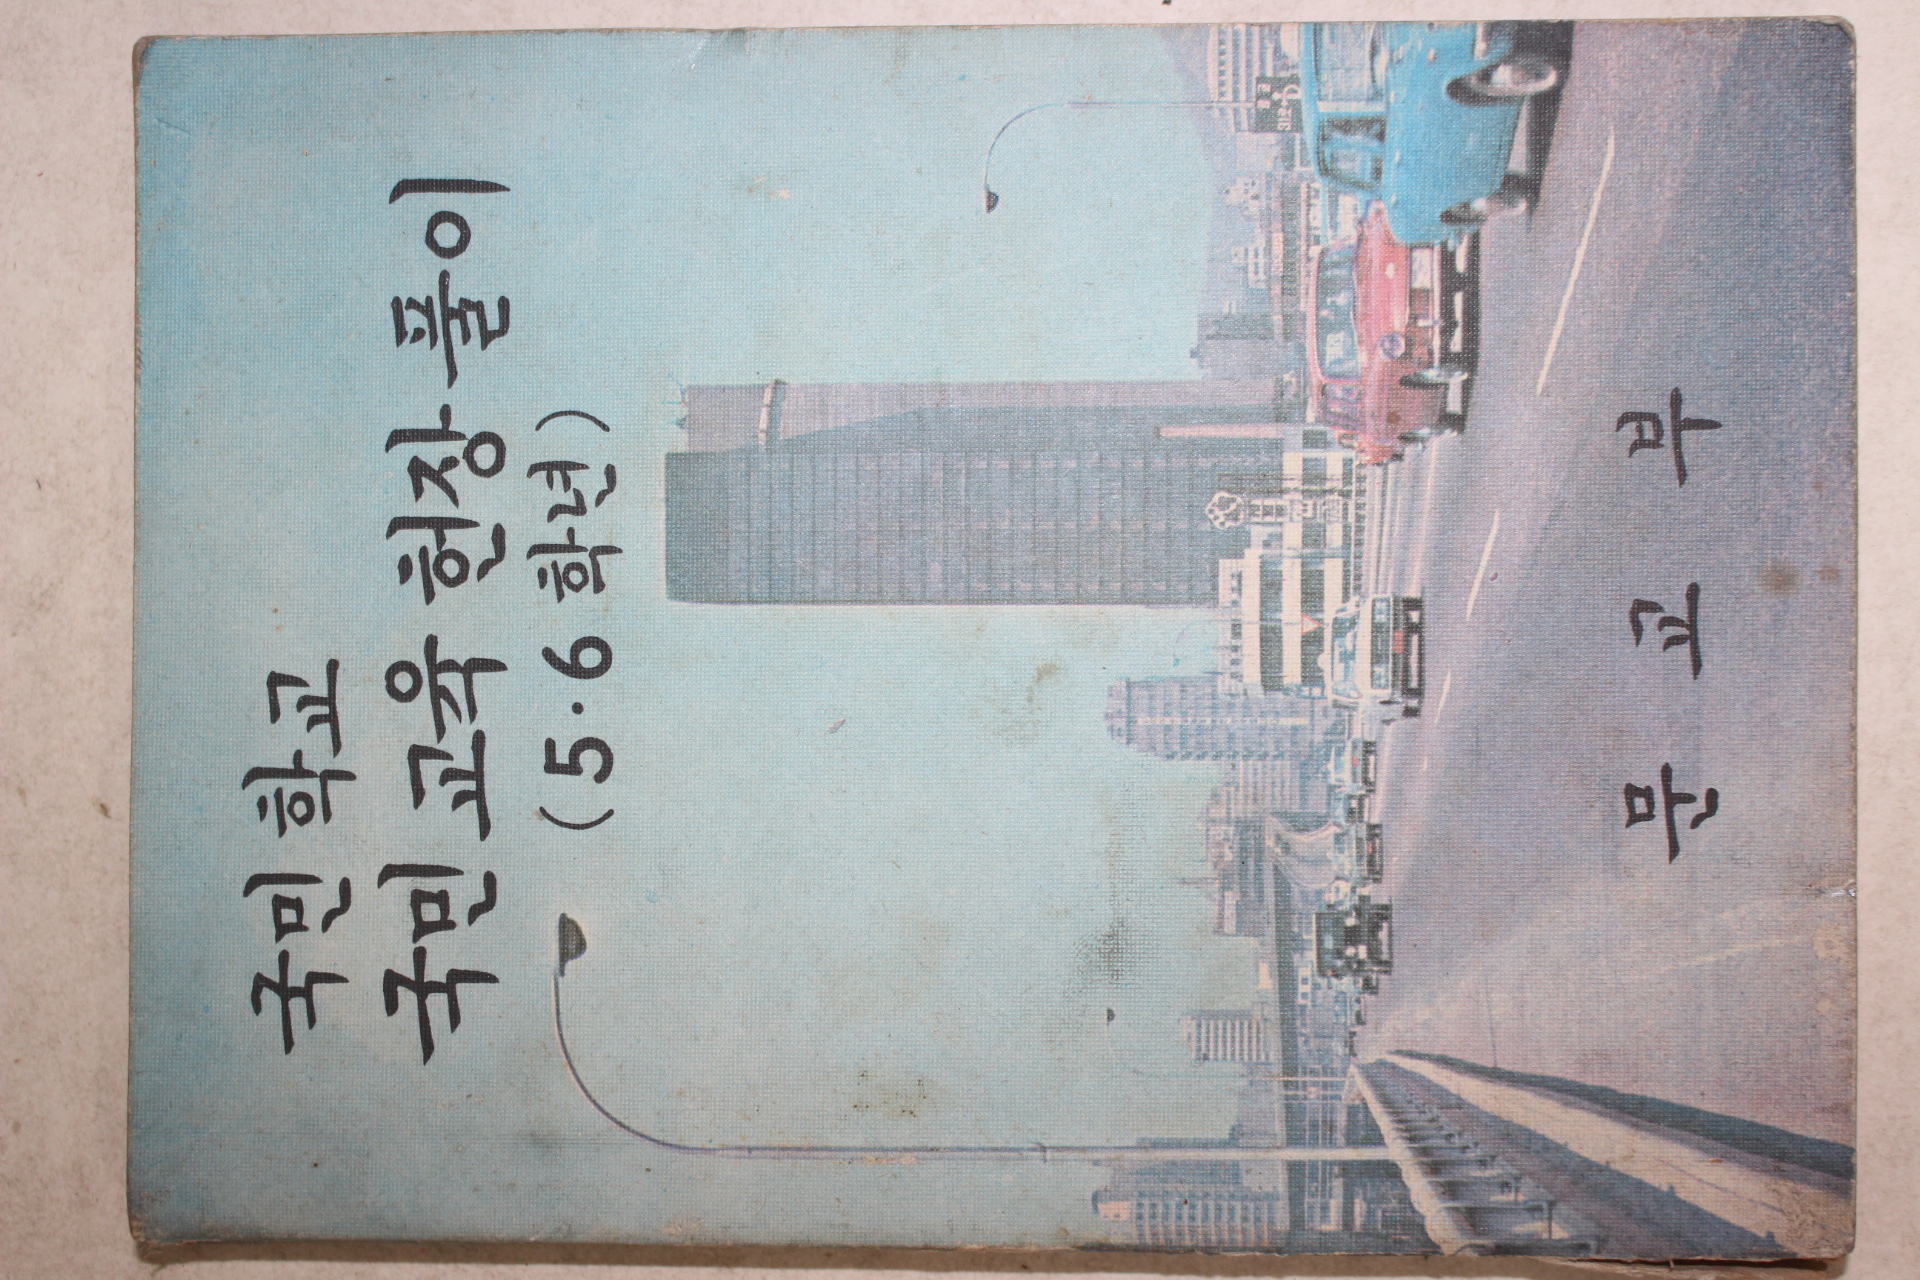 국민 학교
국민 교육 헌장 풀이
(5·6 학년)
문 교 부